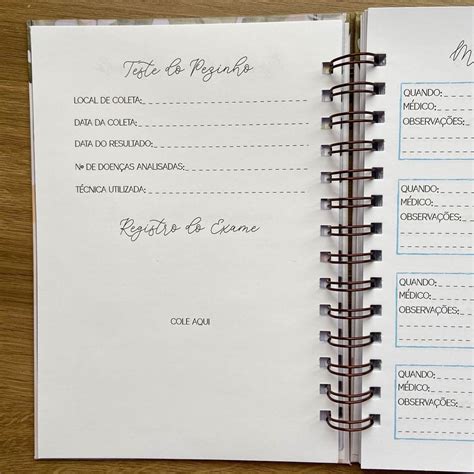 Teste do Pezinho
LOCAL DE COLETA:
DATA DA COLETA:
DATA DO RESULTADO:
Nº DE DOENÇAS ANALISADAS:
TÉCNICA UTILIZADA:
Registro do Exame
COLE AQUI
M
QUANDO:
MÉDICO:
OBSERVAÇÕES:
QUANDO:
MÉDICO:
OBSERVAÇÕES:
QUANDO:
MÉDICO:
OBSERVAÇÕES:
QUANDO:
MÉDICO:
OBSERVAÇÕES: